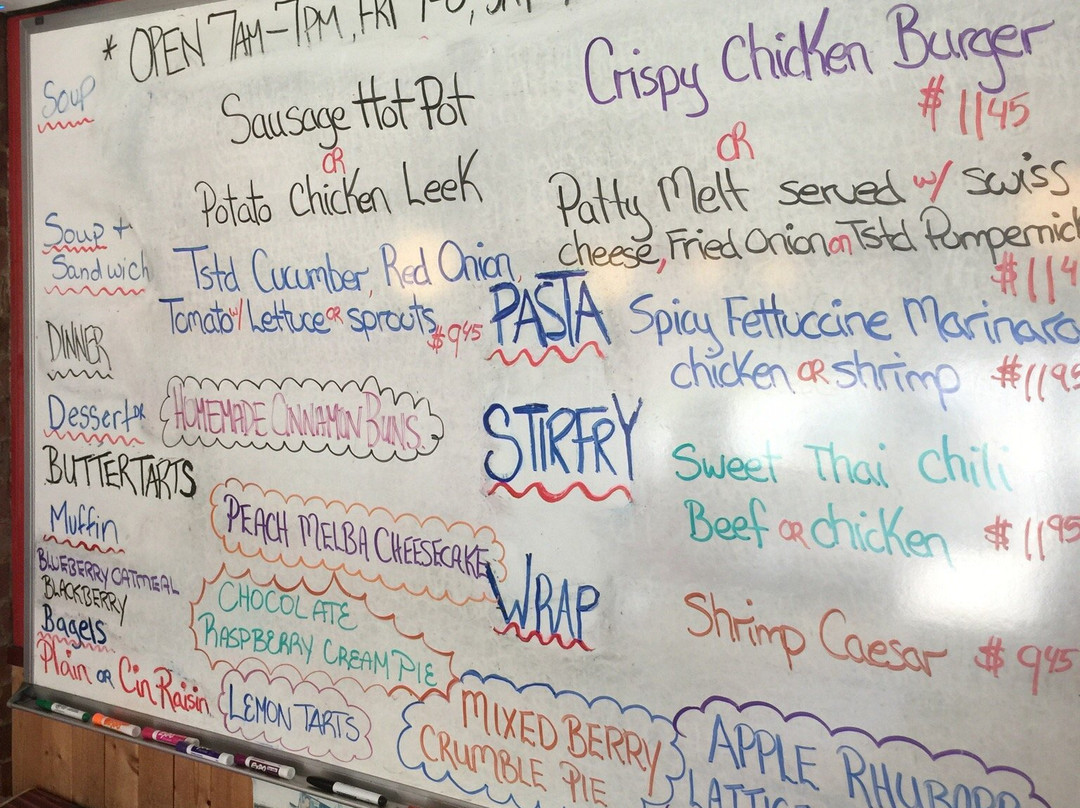 * OPEN 7AM-7PM, FRI
Soup
Sausage Hot Pot
OR
Potato Chicken Leek
Crispy Chicken Burger
$1145
OR
Patty Melt served w/ swiss
cheese, Fried Onion on Tstd Pumpernick
$114
Soup +
Sandwich
Tstd Cucumber, Red Onion,
Tomato w/ Lettuce OR sprouts $945
DINNER
PASTA
Spicy Fettuccine Marinara
chicken OR shrimp $1195
Dessert OR
HOMEMADE CINNAMON BUNS
BUTTERTARTS
STIRFRY
Sweet Thai chili
Beef OR chicken $1195
Muffin
BLUEBERRY OATMEAL
BLACKBERRY
PEACH MELBA CHEESECAKE
CHOCOLATE
RASPBERRY CREAM PIE
WRAP
Shrimp Caesar $945
Bagels
Plain OR Cin-Raisin
LEMON TARTS
MIXED BERRY
CRUMBLE PIE
APPLE RHUBARB
LATTIC